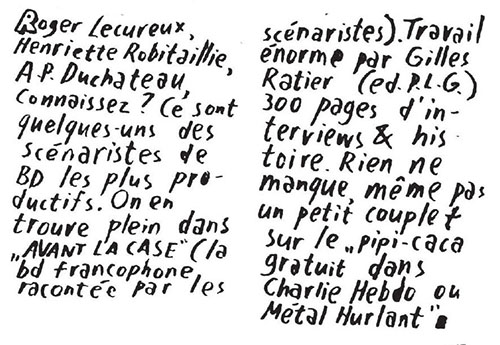 Roger Lecureux,
Henriette Robitaillie,
A.P. Duchateau,
Connaissez? Ce sont
quelques-uns des
scénaristes de
BD les plus pro-
ductifs. On en
trouve plein dans
„AVANT LA CASE" (la
bd francophone
racontée par les
scénaristes). Travail
énorme par Gilles
Ratier (ed. P.L.G.)
300 pages d'in-
terviews & his-
toire. Rien ne
manque, même pas
un petit couplet
sur le „pipi-caca
gratuit dans
Charlie Hebdo ou
Métal Hurlant".